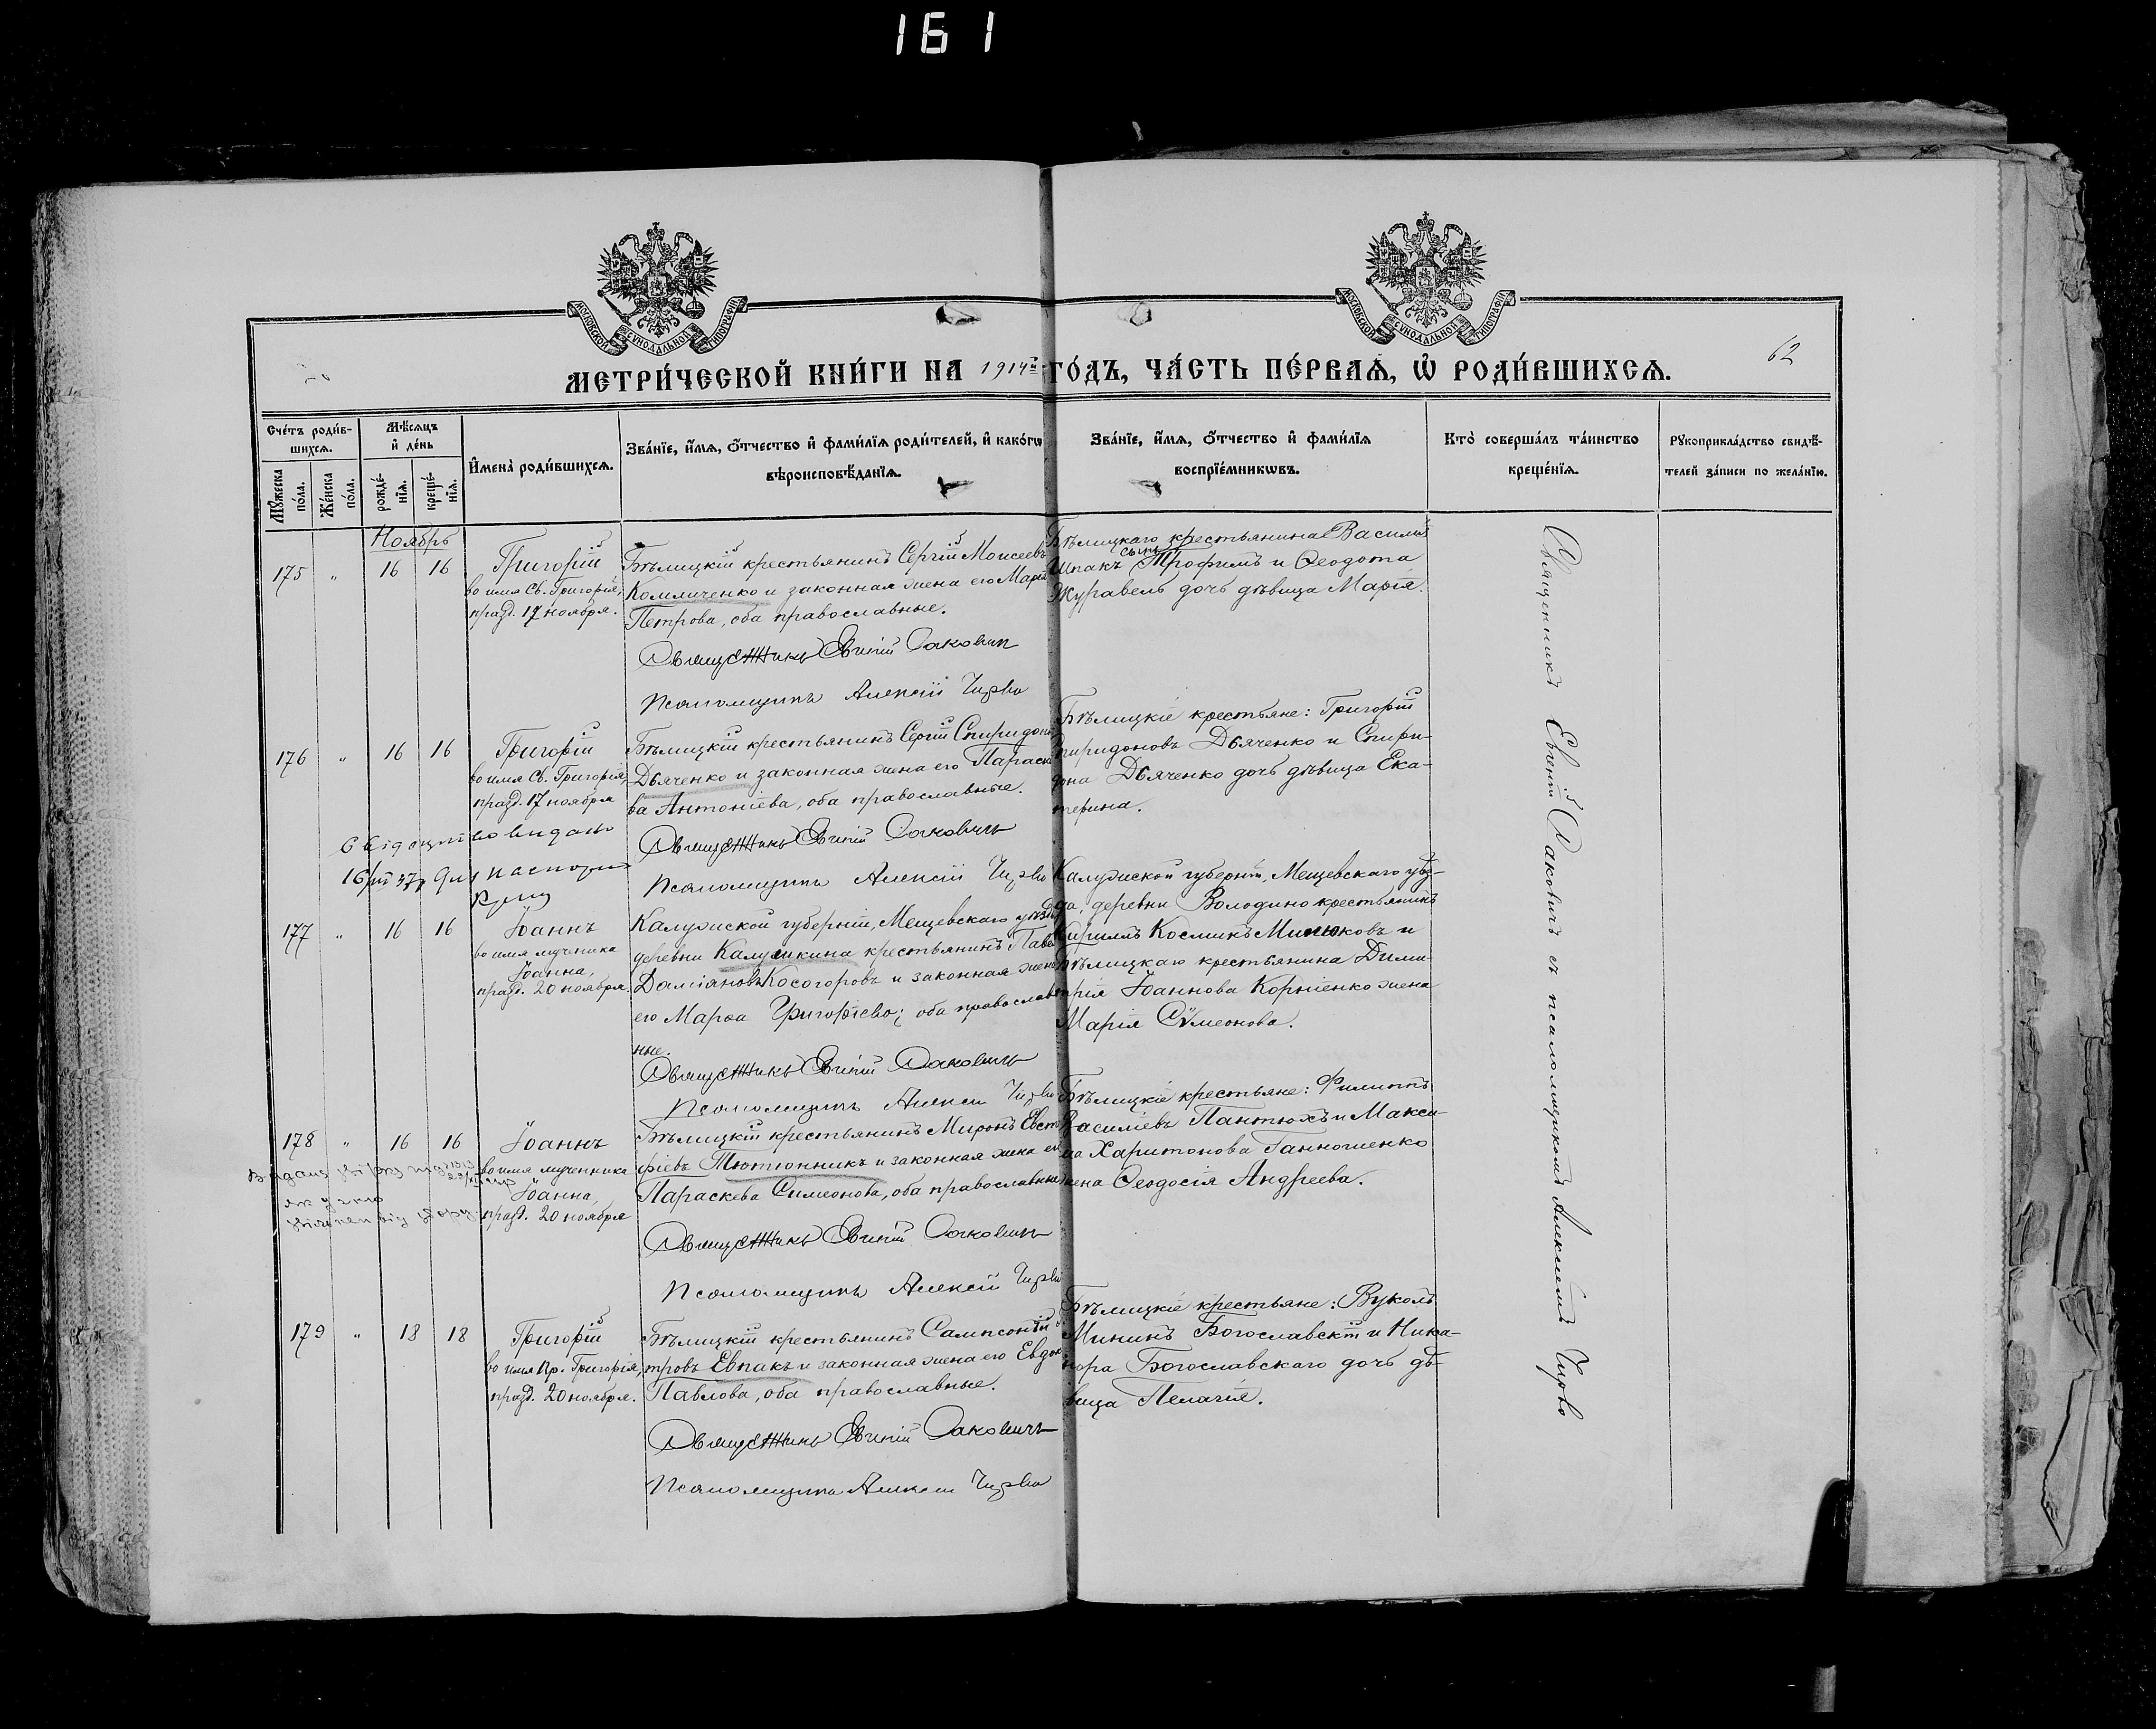 161
МОСКОВСКОЙ СѴНОДАЛЬНОЙ ТИПОГРАФІИ
МОСКОВСКОЙ СѴНОДАЛЬНОЙ ТИПОГРАФІИ
62
МЕТРИ́ЧЕСКОЙ КНИ́ГИ НА 1914й ГО́ДЪ, ЧА́СТЬ ПЕ́РВАѦ, Ѡ҆ РОДИ́ВШИХСѦ.
Сче́тъ роди́в-
шихсѧ.
Мꙋ́жеска по́ла.
Же́нска по́ла.
Мѣ́сѧцъ
и҆ де́нь
рожде́-
нїѧ.
креще́-
нїѧ.
И҆мена̀ роди́вшихсѧ.
Зва́нїе, и҆́мѧ, ѻ҆́тчество и҆ фами́лїѧ роди́телей, и҆ како́гѡ
вѣроисповѣ́данїѧ.
Зва́нїе, и҆́мѧ, ѻ҆́тчество и҆ фами́лїѧ
воспрїе́мникѡвъ.
Кто̀ соверша́лъ та́инство
креще́нїѧ.
Рꙋкоприкла́дство свидѣ́-
телей за́писи по жела́нїю.
Ноябрь
175 " 16 16
Григорій
во имя Св. Григорія,
празд. 17 ноября.
Бѣлицкій крестьянинъ Сергій Моисеевъ
Комличенко и законная жена его Марія
Петрова, оба православные.
Священникъ Евгеній Сакович
Псаломщикъ Алексій Чирво
Бѣлицкаго крестьянина Василія
Шпакъ сынъ Трофимъ и Ѳеодота
Журавель дочь дѣвица Марія.
176 " 16 16
Григорій
во имя Св. Григорія,
празд. 17 ноября
Бѣлицкій крестьянинъ Сергій Спиридоно
Дьяченко и законная жена его Параске
ва Антоніева, оба православные.
Священникъ Евгеній Саковичъ
Псаломщикъ Алексій Чирво
Бѣлицкіе крестьяне: Григорій
Спиридоновъ Дьяченко и Спири-
дона Дьяченко дочь дѣвица Ека-
терина.
видано
16/VII 37р для
177 " 16 16
Іоаннъ
во имя мученика
Іоанна,
празд. 20 ноября.
Калужской губерніи, Мещевскаго уѣзда
деревни Калушкина крестьянинъ Павелъ
Даміановъ Косогоровъ и законная жена
его Марѳа Григоріева; оба православ
ные.
Священникъ Евгеній Саковичъ
Псаломщикъ Алексій Чирво
Калужской губерніи, Мещевскаго уѣз-
да, деревни Володино крестьянинъ
Кириллъ Косминъ Милюковъ и
Бѣлицкаго крестьянина Дими
трія Іоаннова Корніенко жена
Марія Сѵмеонова.
178 " 16 16
Іоаннъ
во имя мученика
Іоанна,
празд. 20 ноября
Бѣлицкій крестьянинъ Миронъ Евста
фіевъ Тютюнникъ и законная жена его
Параскева Симеонова, оба православные
Священникъ Евгеній Саковичъ
Псаломщикъ Алексій Чирво
Бѣлицкіе крестьяне: Филиппъ
Василіевъ Пантюхъ и Макси-
ма Харитонова Ганношенко
жена Ѳеодосія Андреева.
179 " 18 18
Григорій
во имя Пр. Григорія,
празд. 20 ноября.
Бѣлицкій крестьянинъ Сампсоній
тровъ Евпакъ и законная жена его Евдок
Павлова, оба православные.
Священникъ Евгеній Саковичъ
Псаломщикъ Алексій Чирво
Бѣлицкіе крестьяне: Вуколъ
Мининъ Богославскій и Ника-
нора Богославскаго дочь дѣ-
вица Пелагія.
Священникъ Евгеній Саковичъ съ псаломщикомъ Алексіемъ Чирво